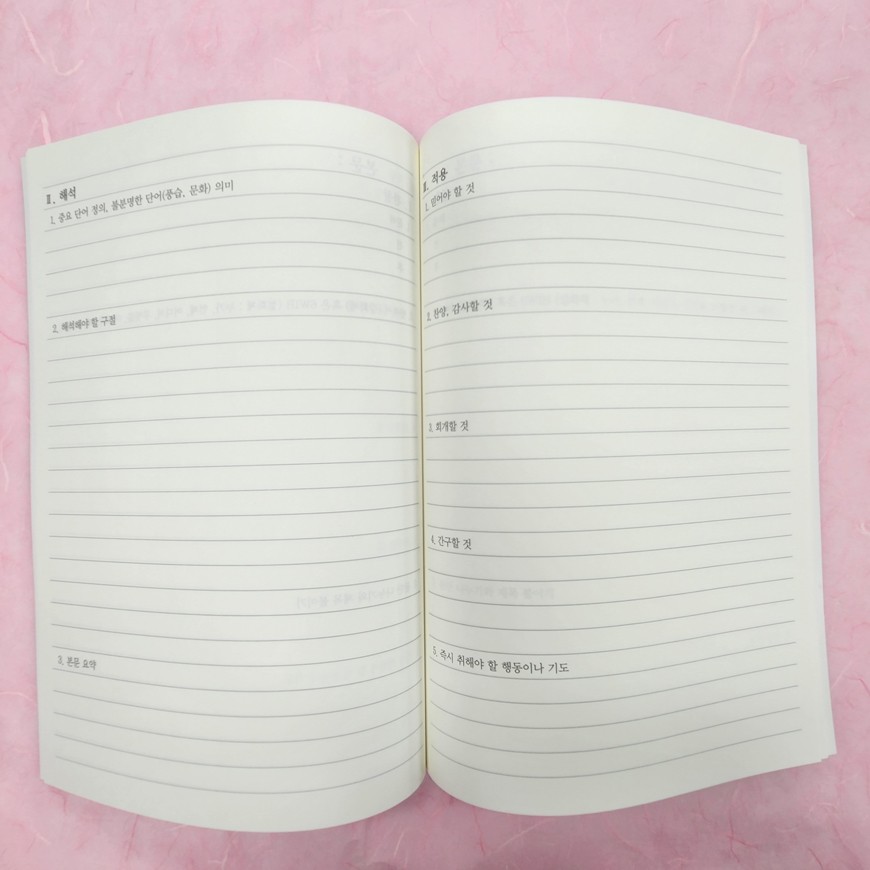 Ⅱ. 해석
1. 중요 단어 정의, 불분명한 단어(풍습, 문화) 의미
2. 해석해야 할 구절
3. 본문 요약
Ⅲ. 적용
1. 믿어야 할 것
2. 찬양, 감사할 것
3. 회개할 것
4. 간구할 것
5. 즉시 취해야 할 행동이나 기도